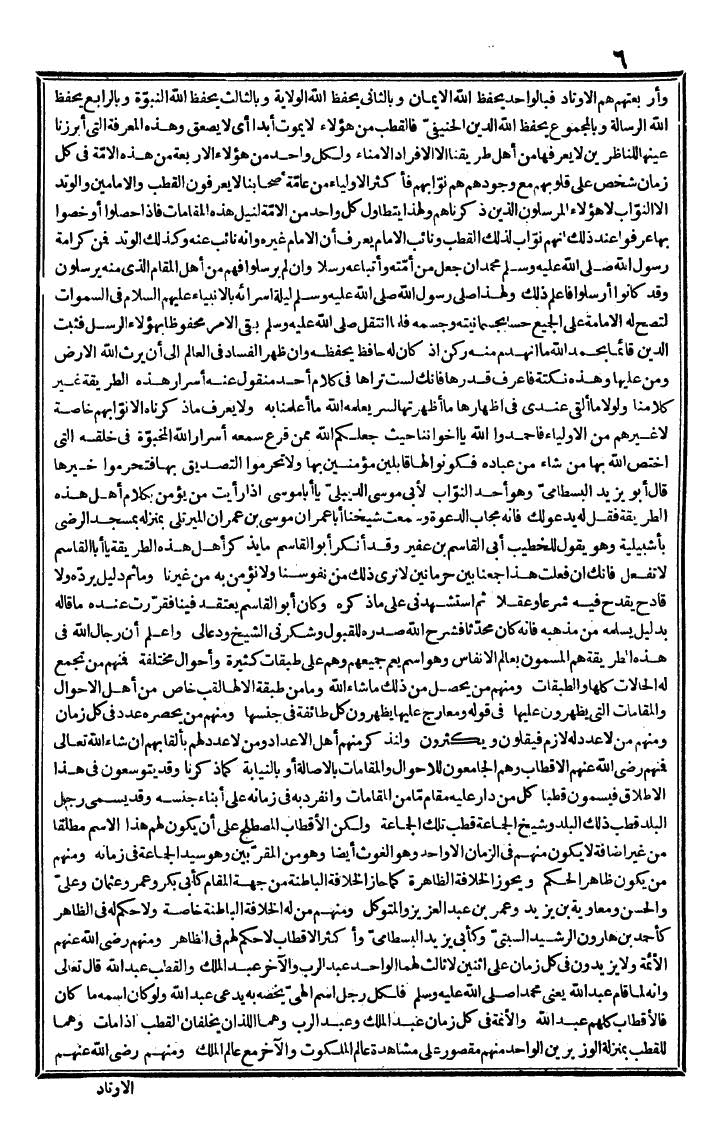 ٦
وأربعتهم هم الاوتاد فبالواحد يحفظ الله الايمان وبالثاني يحفظ الله الولاية وبالثالث يحفظ الله النبوّة وبالرابع يحفظ
الله الرسالة وبالمجموع يحفظ الله الدين الحنيفيّ فالقطب من هؤلاء لا يموت أبدا أى لا يصعق وهذه المعرفة التى أبرزنا
عينها للناظرين لا يعرفها من أهل طريقنا الا الافراد الامناء ولكل واحد من هؤلاء الاربعة من هذه الامّة فى كل
زمان شخص على قلوبهم مع وجودهم هم نوّابهم فأكثر الاولياء من عامّة أصحابنا لا يعرفون القطب والامامين والوتد
الا النوّاب لا هؤلاء المرسلون الذين ذكرناهم ولهذا يتطاول كل واحد من الامّة لنيل هذه المقامات فاذا حصلوا أو خصوا
بها عرفوا عند ذلك انهم نوّاب لذلك القطب ونائب الامام يعرف أن الامام غيره وانه نائب عنه وكذلك الوتد فمن كرامة
رسول الله صلى الله عليه وسلم محمد ان جعل من أمّته وأتباعه رسلا وان لم يرسلوا فهم من أهل المقام الذى منه يرسلون
وقد كانوا أرسلوا فاعلم ذلك ولهذا صلى رسول الله صلى الله عليه وسلم ليلة اسرائه بالانبياء عليهم السلام فى السموات
لتصح له الامامة على الجميع حسا بجسمانيته وجسمه فلما انتقل صلى الله عليه وسلم بقى الامر محفوظا بهؤلاء الرسل فثبت
الدين قائما بحمد الله ما انهدم منه ركن اذ كان له حافظ يحفظه وان ظهر الفساد فى العالم الى أن يرث الله الارض
ومن عليها وهذه نكتة فاعرف قدرها فانك لست تراها فى كلام أحد منقول عنه أسرار هذه الطريقة غير
كلامنا ولولا ما ألقى عندى فى اظهارها ما أظهرتها لسر يعلمه الله ما أعلمنا به ولا يعرف ما ذكرناه الا نوّابهم خاصة
لا غيرهم من الاولياء فاحمدوا الله يا اخواننا حيث جعلكم الله ممن قرع سمعه أسرار الله المخبوّة فى خلقه التى
اختص الله بها من شاء من عباده فكونوا لها قابلين مؤمنين بها ولا تحرموا التصديق بها فتحرموا خيرها
قال أبو يزيد البسطامىّ وهو أحد النوّاب لأبى موسى الديبلىّ يا أبا موسى اذا رأيت من يؤمن بكلام أهل هذه
الطريقة فقل له يدعو لك فانه مجاب الدعوة وسمعت شيخنا أبا عمران موسى بن عمران الميرتلى بمنزله بمسجد الرضى
بأشبيلية وهو يقول للخطيب أبى القاسم بن عفير وقد أنكر أبو القاسم ما يذكر أهل هذه الطريقة يا أبا القاسم
لا تفعل فانك ان فعلت هذا جمعنا بين حرمانين لا نرى ذلك من نفوسنا ولا نؤمن به من غيرنا وما ثم دليل يردّه ولا
قادح يقدح فيه شرعا وعقلا ثم استشهدنى على ما ذكره وكان أبو القاسم يعتقد فينا فقرّرت عنده ما قاله
بدليل يسلمه من مذهبه فانه كان محدّثا فشرح الله صدره للقبول وشكرنى الشيخ ودعالى واعلم أن رجال الله فى
هذه الطريقة هم المسمون بعالم الانفاس وهو اسم يعم جميعهم وهم على طبقات كثيرة وأحوال مختلفة فمنهم من تجمع
له الحالات كلها والطبقات ومنهم من يحصل من ذلك ما شاء الله وما من طبقة الا لها لقب خاص من أهل الاحوال
والمقامات التى يظهرون عليها فى قوله ومعارج عليها يظهرون كل طائفة فى جنسها ومنهم من يحصره عدد فى كل زمان
ومنهم من لا عدد له لازم فيقلون ويكثرون ولنذكر منهم أهل الاعداد ومن لا عدد لهم بألقابهم ان شاء الله تعالى
فمنهم رضى الله عنهم الاقطاب وهم الجامعون للاحوال والمقامات بالاصالة أو بالنيابة كما ذكرنا وقد يتوسعون فى هذا
الاطلاق فيسمون قطبا كل من دار عليه مقام ما من المقامات وانفرد به فى زمانه على أبناء جنسه وقد يسمى رجل
البلد قطب ذلك البلد وشيخ الجماعة قطب تلك الجماعة ولكن الأقطاب المصطلح على أن يكون لهم هذا الاسم مطلقا
من غير اضافة لا يكون منهم فى الزمان الا واحد وهو الغوث أيضا وهو من المقرّبين وهو سيد الجماعة فى زمانه ومنهم
من يكون ظاهر الحكم ويحوز الخلافة الظاهرة كما حاز الخلافة الباطنة من جهة المقام كأبى بكر وعمر وعثمان وعلىّ
والحسن ومعاوية بن يزيد وعمر بن عبد العزيز والمتوكل ومنهم من له الخلافة الباطنة خاصة ولا حكم له فى الظاهر
كأحمد بن هارون الرشيد السبتىّ وكأبى يزيد البسطامىّ وأكثر الاقطاب لا حكم لهم فى الظاهر ومنهم رضى الله عنهم
الأئمّة ولا يزيدون فى كل زمان على اثنين لا ثالث لهما الواحد عبد الرب والآخر عبد الملك والقطب عبد الله قال تعالى
وانه لما قام عبد الله يعنى محمدا صلى الله عليه وسلم فلكل رجل اسم الهىّ يخصه به يدعى عبد الله ولو كان اسمه ما كان
فالأقطاب كلهم عبد الله والأئمة فى كل زمان عبد الملك وعبد الرب وهما اللذان يخلفان القطب اذا مات وهما
للقطب بمنزلة الوزيرين الواحد منهم مقصور على مشاهدة عالم الملكوت والآخر مع عالم الملك ومنهم رضى الله عنهم
الاوتاد